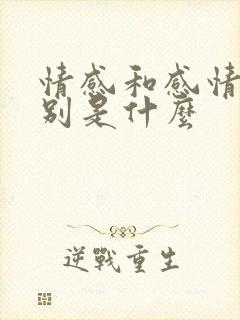 情感和感情
别是什麼
逆戰重生